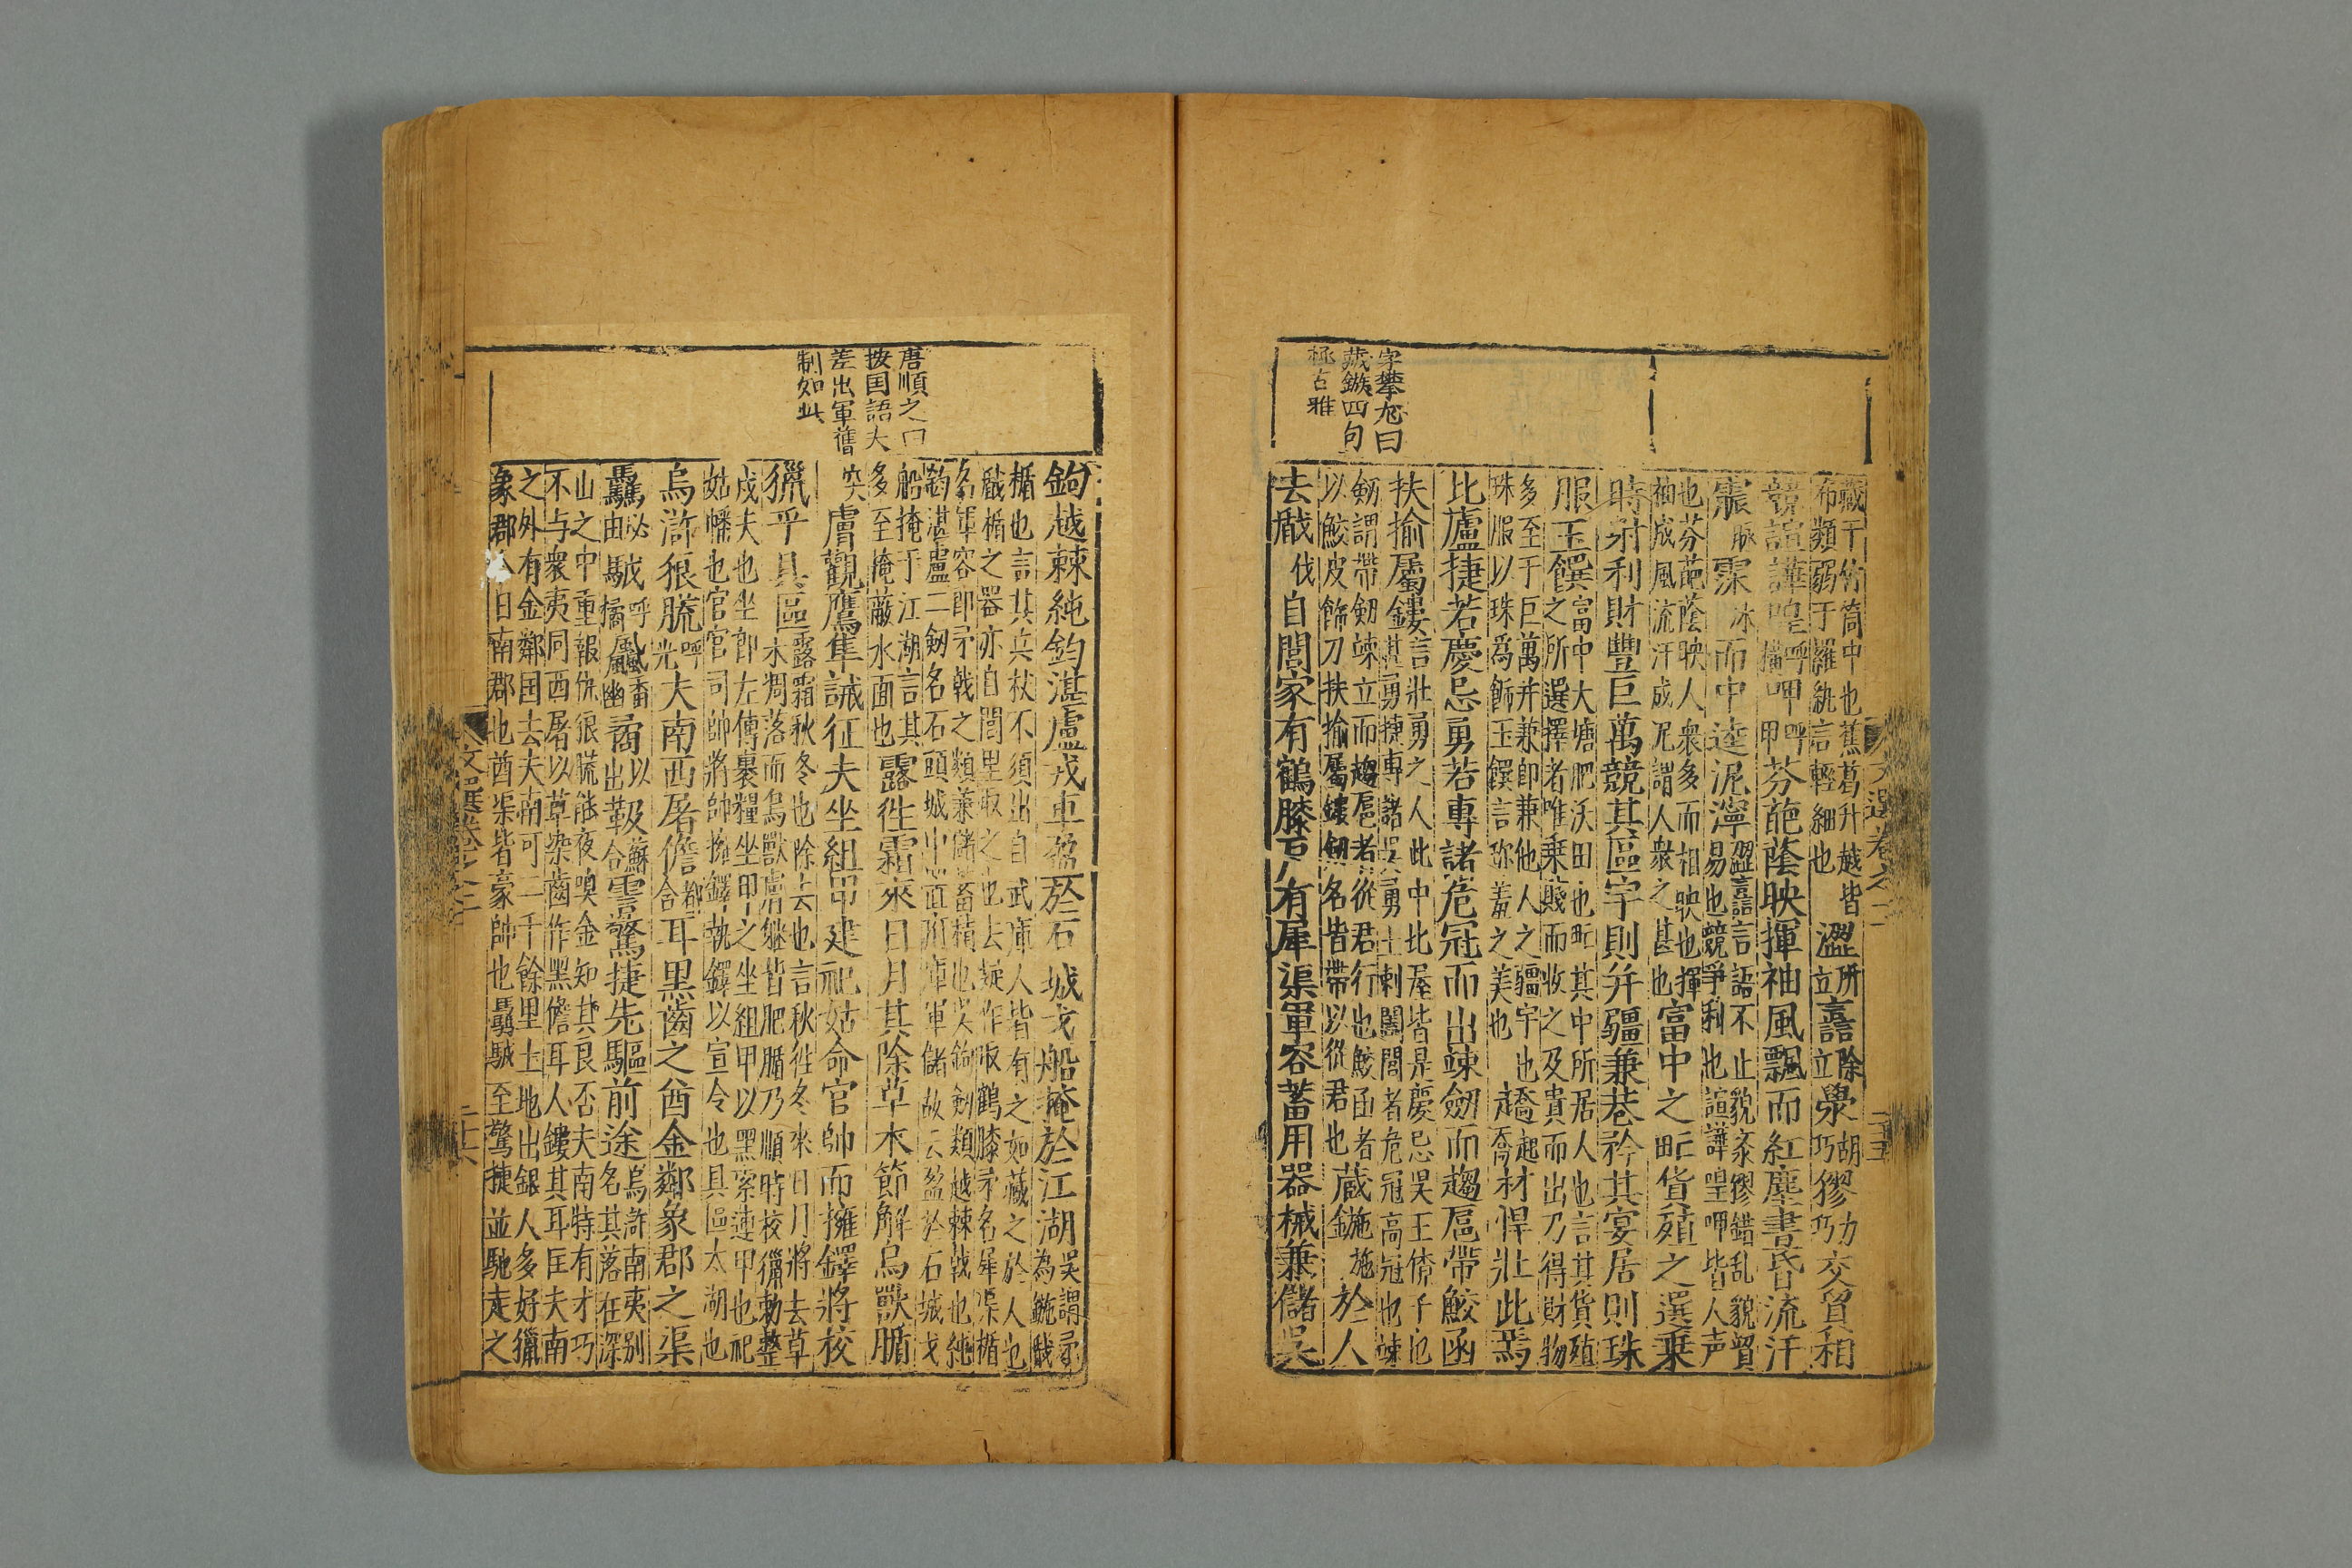 字攀尨曰
藏鏃四句
極古雅
藏于竹筒中也蕉葛升越皆
布類弱于羅紈言輕細也
澀所立譶除立㶅胡巧獠力巧交貿相
競諠譁喤呼橫呷呼甲芬葩蔭映揮袖風飄而紅塵晝昏流汗
霢脉霂沐而中逵泥濘
譶言語不止貌㶅獠錯乱貌貿
易也競爭利也諠譁喤呷皆人声
也芬葩蔭映人衆多而相映也揮
袖成風流汗成泥謂人衆之甚也
富中之甿貨殖之選乗
時射利財豐巨萬競其區宇則并疆兼巷矜其宴居則珠
服玉饌
富中大塘肥沃田也甿其中所居人也言其貨殖
之所選擇者唯乗賤而收之及貴而出乃得財物
多至于巨萬并兼即兼他人之疆宇也
珠服以珠爲飾玉饌言珎羞之美也
趫起喬材悍壯此焉
比廬捷若慶忌勇若專諸危冠而出竦劒而趨扈帶鮫函
扶揄屬鏤
言壯勇之人此中比屋皆是慶忌吴王僚子也
其勇捷專諸吴勇士刺闔閭者危冠高冠也竦
劒謂帶劒竦立而趨扈者從君行也鮫函者
以鮫皮飾刀扶揄屬鏤劒名皆帶以從君也
藏鍦施於人
去戢伐自閭家有鶴膝戶有犀渠軍容蓄用器械兼儲吴
文選卷之三
二十五
唐順之曰
按国語夫
差出軍舊
制如此
鉤越棘純鈞湛盧戎車盈於石城戈船掩於江湖
吴謂矛
為鍦戢
楯也言其兵杖不須出自武庫人皆有之如藏之於人也
戢楯之器亦自閭里取之也去疑作取鶴膝矛名犀渠楯
名軍容即矛戟之類兼儲蓄積也吴鉤劒類越棘戟也純
鈞湛盧二劒名石頭城中置府庫軍儲故云盈於石城戈
船掩于江湖言其
多至掩蔽水面也
露徃霜來日月其除草木節解鳥獸腯
突膚觀鷹隼誡征夫坐組甲建祀姑命官帥而擁鐸將校
獵乎具區
露霜秋冬也除去也言秋徃冬來日月將去草
木凋落而鳥獸膚継皆肥腯乃順時校獵勅整
戍夫也坐即左傳裹糧坐甲之坐組甲以黑索連甲也祀
姑幡也官官司帥將帥擁鐸執鐸以宣令也具區太湖也
烏滸狼腨呼光夫南西屠儋都合耳黒齒之酋金鄰象郡之渠
驫必由駥呼橘飍香幽矞以出靸蘇合霅驚捷先驅前途
烏滸南夷別
名其落在深
山之中重報仇狼腨能夜嗅金知其良否夫南特有才巧
不与衆夷同西屠以草染齒作黑儋耳人鏤其耳匡夫南
之外有金鄰国去夫南可二千餘里土地出銀人多好獵
象郡今日南郡也酋渠皆豪帥也驫駥至驚捷並馳走之
文選卷之三
二十六